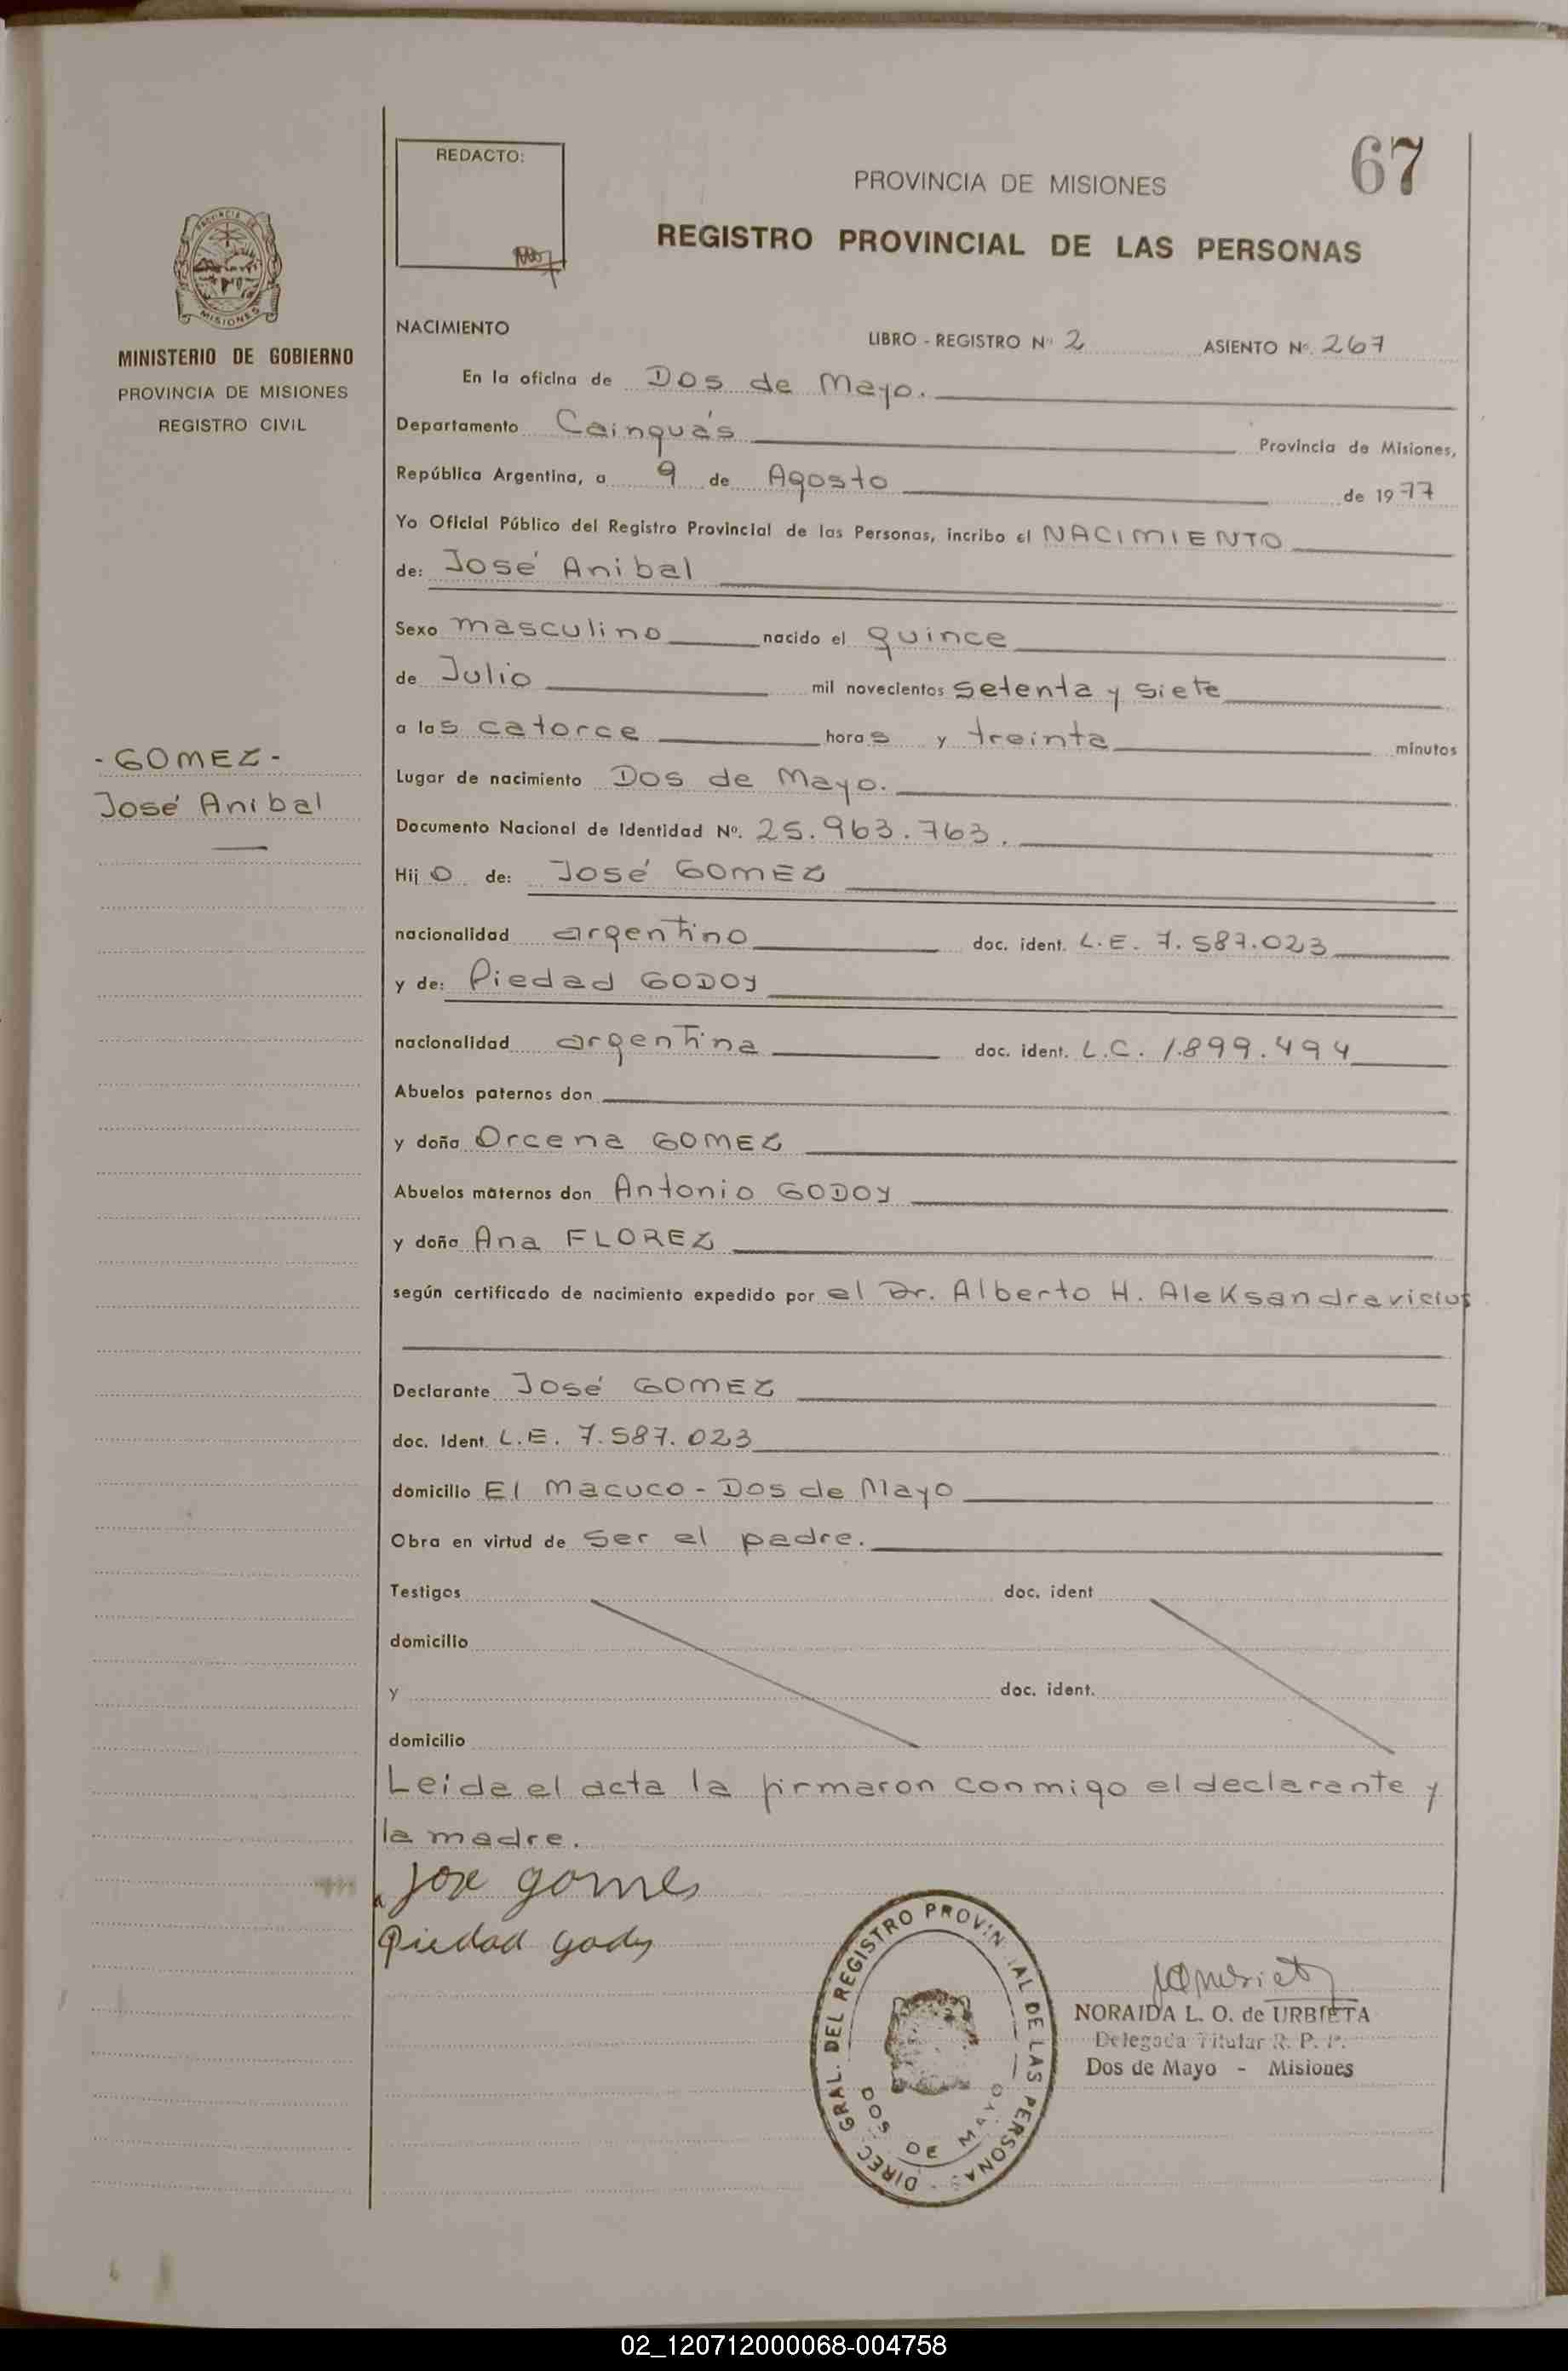 67
REDACTO:
PROVINCIA DE MISIONES
REGISTRO PROVINCIAL DE LAS PERSONAS
MISIONES
MINISTERIO DE GOBIERNO
PROVINCIA DE MISIONES
REGISTRO CIVIL
NACIMIENTO
LIBRO - REGISTRO Nº 2 ASIENTO Nº. 267
En la oficina de Dos de Mayo.
Departamento Cainguás Provincia de Misiones,
República Argentina, a 9 de Agosto de 1977
Yo Oficial Público del Registro Provincial de las Personas, incribo el NACIMIENTO
de: José Anibal
Sexo masculino nacido el quince
de Julio mil novecientos setenta y siete
a las catorce horas y treinta minutos
- GOMEZ -
José Anibal
Lugar de nacimiento Dos de Mayo.
Documento Nacional de Identidad Nº. 25.963.763.
Hijo de: José GOMEZ
nacionalidad argentino doc. ident. L.E. 7.587.023
y de: Piedad GODOY
nacionalidad argentina doc. ident. L.C. 1.899.494
Abuelos paternos don
y doña Orcena GOMEZ
Abuelos maternos don Antonio GODOY
y doña Ana FLOREZ
según certificado de nacimiento expedido por el Dr. Alberto H. Aleksandravicius
Declarante José GOMEZ
doc. Ident. L.E. 7.587.023
domicilio El Macuco - Dos de Mayo
Obra en virtud de ser el padre.
Testigos doc. ident
domicilio
y doc. ident.
domicilio
Leida el acta la firmaron conmigo el declarante y
la madre.
Jose gomes
Piedad Godoy
DIREC. GRAL. DEL REGISTRO PROVINCIAL DE LAS PERSONAS
DOS DE MAYO
NORAIDA L. O. de URBIETA
Delegada Titular R. P. P.
Dos de Mayo - Misiones
02_120712000068-004758